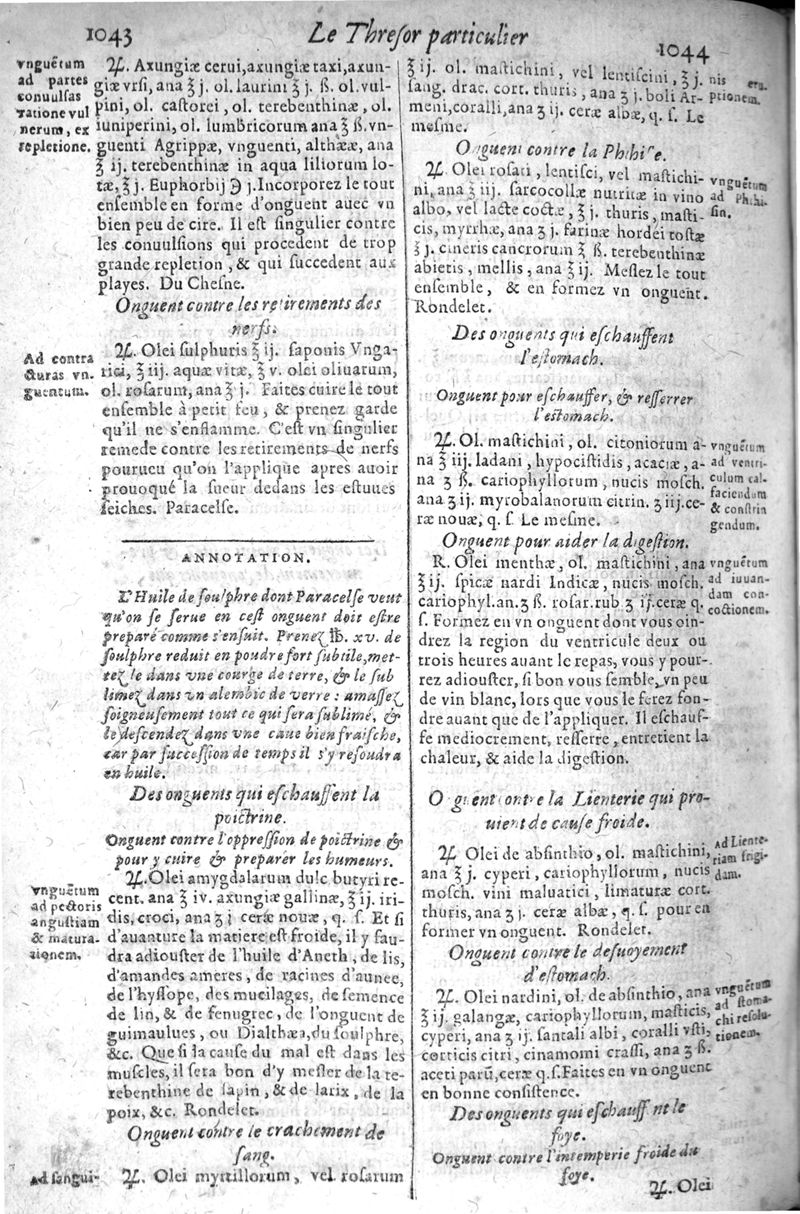 1043
Le Thresor particulier
1044
vnguētum
ad partes
conuulsas
ratione vul
nerum, ex
repletione.
♃. Axungiæ cerui, axungiæ taxi, axun-
giæ vrsi, ana ℥ j. ol. laurini ℥ j. ß. ol. vul-
pini, ol. castorei, ol. terebenthinæ, ol.
iuniperini, ol. lumbricorum ana ℥ ß. vn-
guenti Agrippæ, vnguenti, althææ, ana
℥ ij. terebenthinæ in aqua liliorum lo-
tæ, ℥ j. Euphorbij ℈ j. Incorporez le tout
ensemble en forme d'onguent auec vn
bien peu de cire. Il est singulier contre
les conuulsions qui procedent de trop
grande repletion, & qui succedent aux
playes. Du Chesne.
Onguent contre les retirements des
nerfs.
Ad contra
cturas vn.
guentum.
♃. Olei sulphuris ℥ ij. saponis Vnga-
rici, ℥ iij. aquæ vitæ, ℥ v. olei oliuarum,
ol. rosarum, ana ℥ j. Faites cuire le tout
ensemble à petit feu, & prenez garde
qu'il ne s'enflamme. C'est vn singulier
remede contre les retirements de nerfs
pourueu qu'on l'applique apres auoir
prouoqué la sueur dedans les estuues
seiches. Paracelse.
ANNOTATION.
L'Huile de soulphre dont Paracelse veut
qu'on se serue en cest onguent doit estre
preparé comme s'ensuit. Prenez ℔. xv. de
soulphre reduit en poudre fort subtile, met-
tez le dans vne courge de terre, & le sub
limez dans vn alembic de verre : amassez
soigneusement tout ce qui sera sublimé, &
le descendez dans vne caue bien fraische,
car par succession de temps il s'y resoudra
en huile.
Des onguents qui eschauffent la
poictrine.
Onguent contre l'oppression de poictrine &
pour y cuire & preparer les humeurs.
vnguētum
ad pectoris
angustiam
& matura-
tionem.
♃. Olei amygdalarum dulc butyri re-
cent. ana ℥ iv. axungiæ gallinæ, ℥ ij. iri-
dis, croci, ana ʒ j ceræ nouæ, q. s. Et si
d'auanture la matiere est froide, il y fau-
dra adiouster de l'huile d'Aneth, de lis,
d'amandes ameres, de racines d'aunee,
de l'hyssope, des mucilages, de semence
de lin, & de fenugrec, de l'onguent de
guimaulues, ou Dialthæa, du soulphre,
&c. Que si la cause du mal est dans les
muscles, il sera bon d'y mesler de la te-
rebenthine de sapin, & de larix, de la
poix, &c. Rondelet.
Onguent contre le crachement de
sang.
Ad sangui-
♃. Olei myrtillorum, vel rosarum
℥ ij. ol. mastichini, vel lentiscini, ℥ j.
sang. drac. cort. thuris, ana ʒ j. boli Ar-
meni, coralli, ana ʒ ij. ceræ albæ, q. s. Le
mesme.
nis eru-
ptionem.
Onguent contre la Phthise.
vnguētum
ad Phthi-
sin.
♃. Olei rosati, lentisci, vel mastichi-
ni, ana ℥ iij. sarcocollæ nutritæ in vino
albo, vel lacte coctæ, ℥ j. thuris, masti-
cis, myrrhæ, ana ʒ j. farinæ hordei tostæ
℥ j. cineris cancrorum ℥ ß. terebenthinæ
abietis, mellis, ana ℥ ij. Meslez le tout
ensemble, & en formez vn onguent.
Rondelet.
Des onguents qui eschauffent
l'estomach.
Onguent pour eschauffer, & resserrer
l'estomach.
vnguētum
ad ventri-
culum cal-
faciendum
& constrin
gendum.
♃. Ol. mastichini, ol. citoniorum a-
na ℥ iij. ladani, hypocistidis, acaciæ, a-
na ʒ ß. cariophyllorum, nucis mosch.
ana ʒ ij. myrobalanorum citrin. ʒ iij. ce-
ræ nouæ, q. s. Le mesme.
Onguent pour aider la digestion.
vnguētum
ad iuuan-
dam con-
coctionem.
R. Olei menthæ, ol. mastichini, ana
℥ ij. spicæ nardi Indicæ, nucis mosch.
cariophyl. an. ʒ ß. rosar. rub. ʒ ij. ceræ q.
s. Formez en vn onguent dont vous oin-
drez la region du ventricule deux ou
trois heures auant le repas, vous y pour-
rez adiouster, si bon vous semble, vn peu
de vin blanc, lors que vous le ferez fon-
dre auant que de l'appliquer. Il eschauf-
fe mediocrement, resserre, entretient la
chaleur, & aide la digestion.
O guent contre la Lienterie qui pro-
uient de cause froide.
Ad Liente-
riam frigi-
dam.
♃. Olei de absinthio, ol. mastichini,
ana ℥ j. cyperi, cariophyllorum, nucis
mosch. vini maluatici, limaturæ cort.
thuris, ana ʒ j. ceræ albæ, q. s. pour en
former vn onguent. Rondelet.
Onguent contre le desuoyement
d'estomach.
vnguētum
ad stoma-
chi resolu-
tionem.
♃. Olei nardini, ol. de absinthio, ana
℥ ij. galangæ, cariophyllorum, masticis,
cyperi, ana ʒ ij. santali albi, coralli vsti,
corticis citri, cinamomi crassi, ana ʒ ß.
aceti parū, ceræ q. s. Faites en vn onguent
en bonne consistence.
Des onguents qui eschauff nt le
foye.
Onguent contre l'intemperie froide du
foye.
♃. Olei